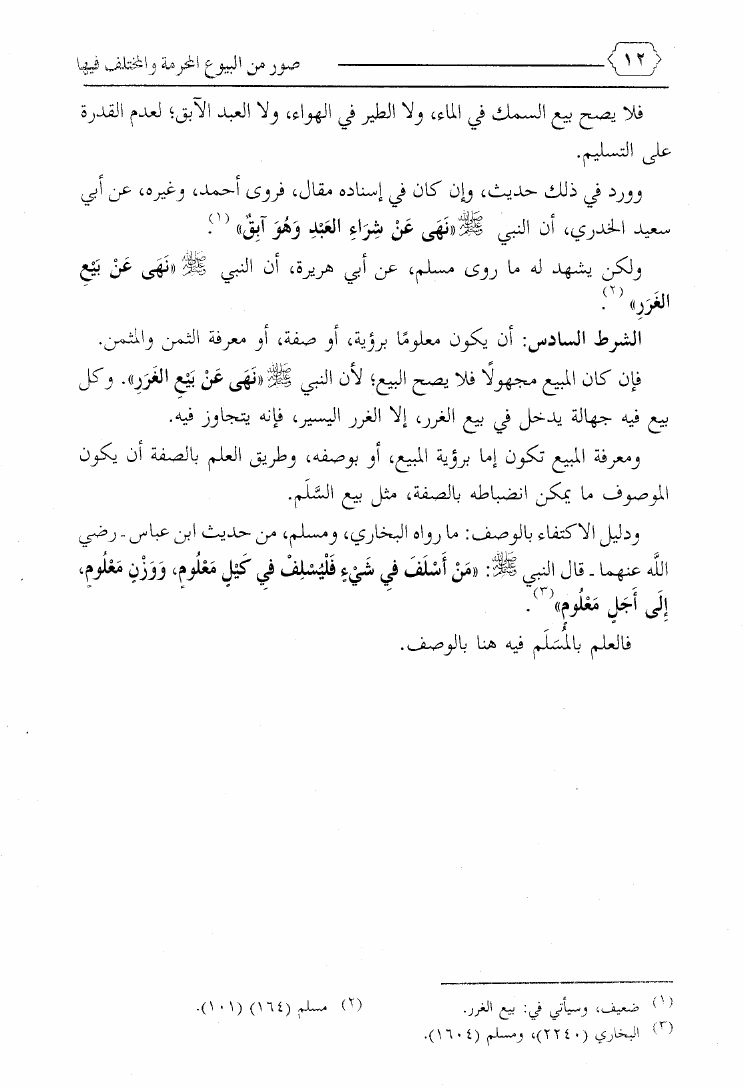 ١٢ صور من البيوع المحرمة والمختلف فيها
فلا يصح بيع السمك في الماء، ولا الطير في الهواء، ولا العبد الآبق؛ لعدم القدرة
على التسليم.
وورد في ذلك حديث، وإن كان في إسناده مقال، فروى أحمد، وغيره، عن أبي
سعيد الخدري، أن النبي ﷺ «نَهَى عَنْ شِرَاءِ العَبْدِ وَهُوَ آبِقٌ» (١).
ولكن يشهد له ما روى مسلم، عن أبي هريرة، أن النبي ﷺ «نَهَى عَنْ بَيْعِ
الغَرَرِ» (٢).
الشرط السادس: أن يكون معلومًا برؤية، أو صفة، أو معرفة الثمن والمثمن.
فإن كان المبيع مجهولًا فلا يصح البيع؛ لأن النبي ﷺ «نَهَى عَنْ بَيْعِ الغَرَرِ». وكل
بيع فيه جهالة يدخل في بيع الغرر، إلا الغرر اليسير، فإنه يتجاوز فيه.
ومعرفة المبيع تكون إما برؤية المبيع، أو بوصفه، وطريق العلم بالصفة أن يكون
الموصوف ما يمكن انضباطه بالصفة، مثل بيع السَّلَم.
ودليل الاكتفاء بالوصف: ما رواه البخاري، ومسلم، من حديث ابن عباس - رضي
اللَّه عنهما - قال النبي ﷺ: «مَنْ أَسْلَفَ فِي شَيْءٍ فَلْيُسْلِفْ فِي كَيْلٍ مَعْلُومٍ، وَوَزْنٍ مَعْلُومٍ،
إِلَى أَجَلٍ مَعْلُومٍ» (٣).
فالعلم بالمُسَلَم فيه هنا بالوصف.
(١) ضعيف، وسيأتي في: بيع الغرر. (٢) مسلم (١٦٤) (١٠١).
(٣) البخاري (٢٢٤٠)، ومسلم (١٦٠٤).